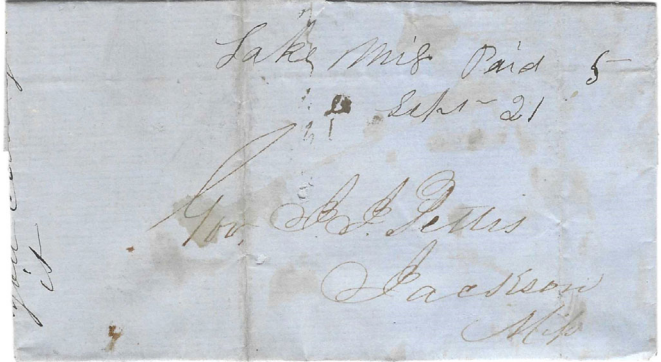 Lake Miss Paid 5
Sept 21
Gov. J. J. Pettus
Jackson
Miss
it